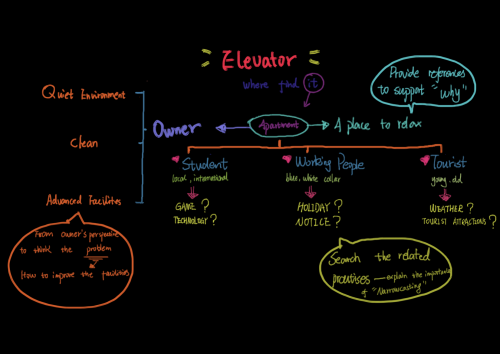 Elevator
where find it
Provide references
to support "why"
Quiet Environment
Owner
Apartment
A place to relax
Clean
Student
Working People
Tourist
local, international
blue, white collar
young, old
Advanced Facilities
GAME ?
TECHNOLOGY ?
HOLIDAY ?
NOTICE ?
WEATHER ?
TOURIST ATTRACTIONS ?
From owner's perspective
to think the problem
How to improve the facilities
Search the related
— explain the importance
of "Narrowcasting"